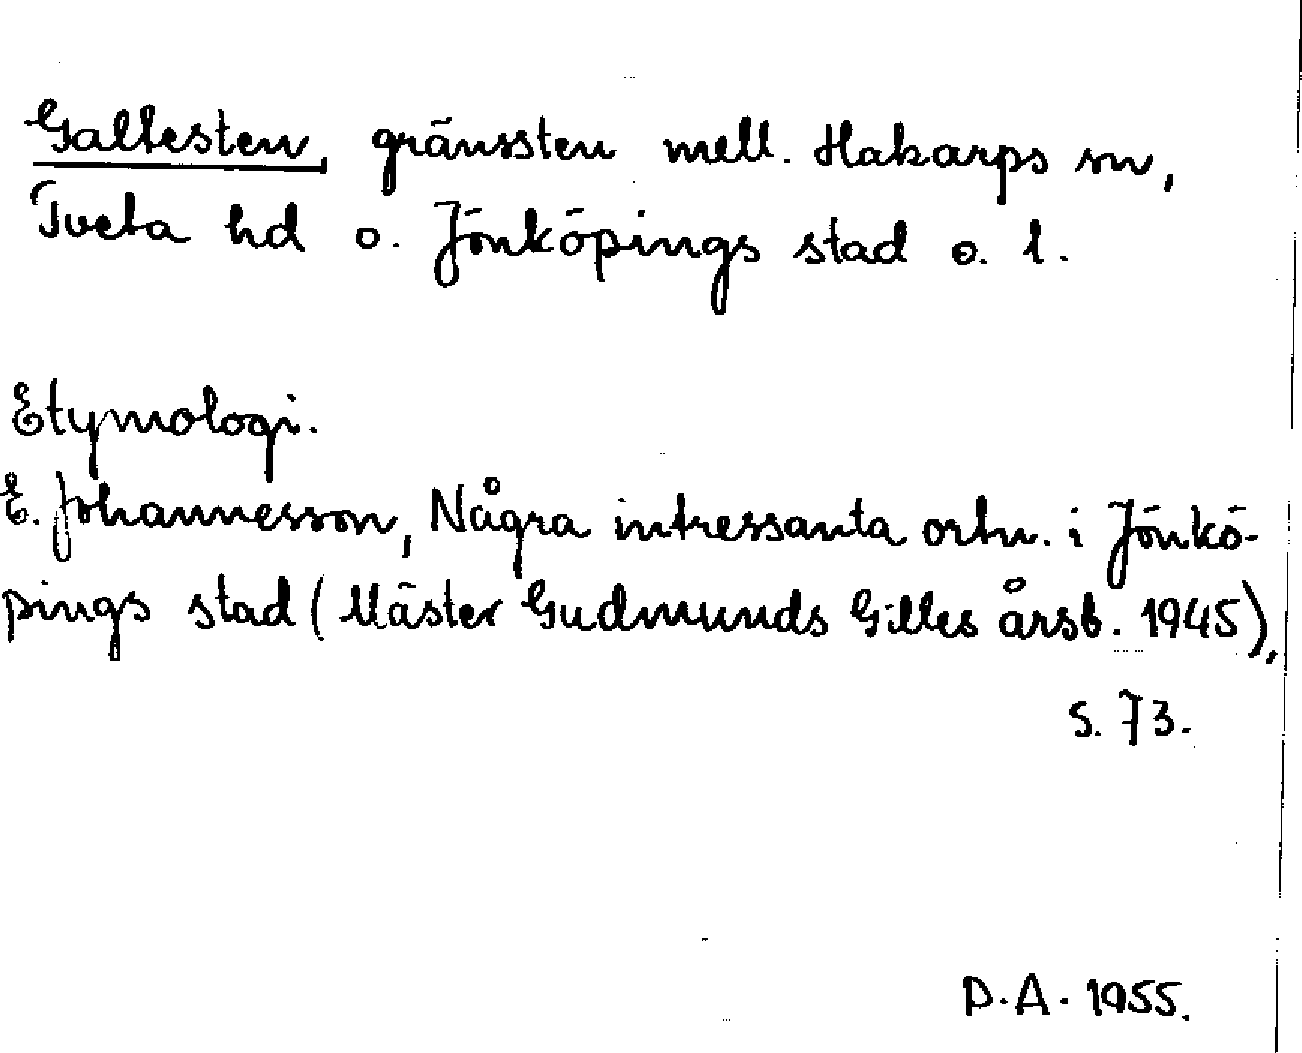 Galtesten, gränssten mell. Hakarps sn,
Tveta hd o. Jönköpings stad o. l.
Etymologi.
E. Johannesson, Några intressanta ortn. i Jönkö-
pings stad (Mäster Gudmunds Gilles årsb. 1945),
s. 73.
D. A. 1955.